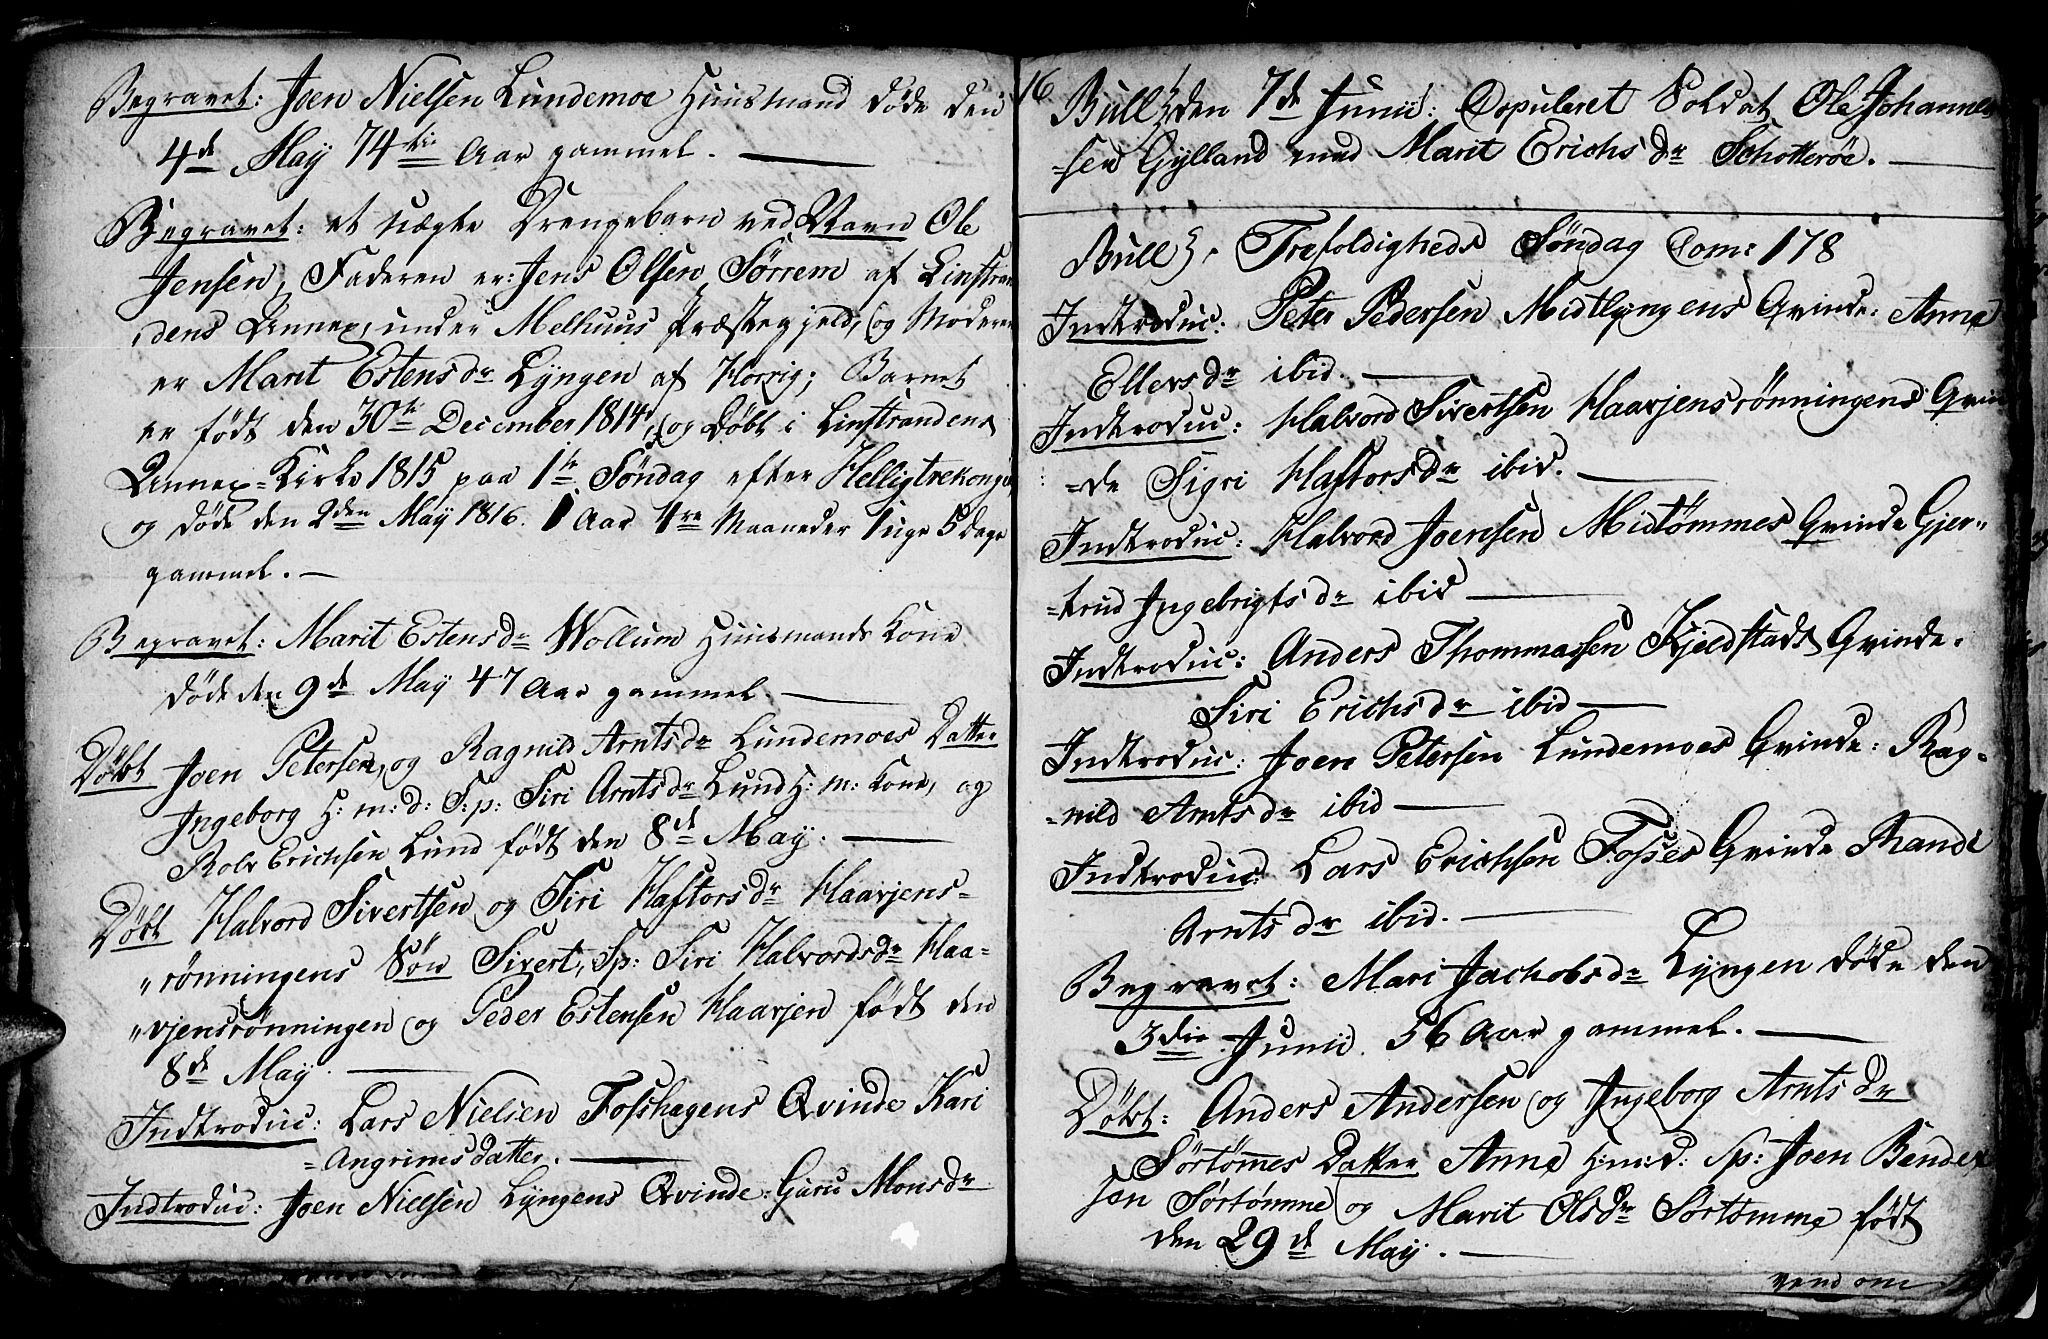 Begravet: Joen Nielsen Lundemoe Huusmand døde den
4de May 74tie Aar gammel.
Begravet: et uægte Drengebarn ved Navn Ole
Jensen, Faderen er: Jens Olsen Sørrem af Linstran
dens Annex, under Melhuus Præstegjeld, og Moderen
er Marit Estensdr Lyngen af Horrig; Barnet
er født den 30te December 1814, og Døbt i Linstrandens
Annex-Kirke 1815 paa 1te Søndag efter Helligtrekonger
og døde den 2den May 1816. 1 Aar 4re Maaneder 1 uge 5 Dage
gammel.
Begravet: Marit Estensdr Wollum Huusmands Kone
døde den 9de May 47 Aar gammel.
Døbt Joen Petersen, og Ragnild Arntsdr Lundemoes Datter
Ingeborg H: m: d: S:p: Siri Arntsdr Lund H: m: Kone, og
Rolv Erichsen Lund født den 8de May.
Døbt Halvord Sivertsen og Siri Haftorsdr Haarjens=
"rønningens Søn Sivert, Sp: Siri Halvordsdr Haa=
"rjensrønningen og Peder Estensen Haarjen født den
8de May.
Indtroduc: Lars Nielsen Foshagens Qvinde Kari
=Angrimsdatter.
Indtroduc: Joen Nielsen Lyngens Qvinde: Guru Monsdr
16
Bull} den 7de Junii: Copuleret Soldat Ole Johannes
=sen Gylland med Marit Erichsdr Schotterøe.
Bull}. Trefoldigheds Søndag Com: 178
Indtroduc: Peter Pedersen Midtlyngens Qvinde: Anne
Ellersdr ibid.
Indtroduc: Halvord Sivertsen Haarjensrønningens Qvin
=de Sigri Haftorsdr ibid.
Indtroduc: Halvord Joensen Midtømmes Qvinde Gjer"
=trud Ingebrigtsdr ibid
Indtroduc: Anders Thommassen Kjeldstads Qvinde.
Siri Erichsdr ibid
Indtroduc: Joen Petersen Lundemoes Qvinde: Rag=
=nild Arntsdr ibid
Indtroduc: Lars Erichsen Fosses Qvinde Randi
Arntsdr ibid.
Begravet: Mari Jachobsdr Lyngen døde den
3die Junii. 56 Aar gammel.
Døbt: Anders Andersen og Ingeborg Arntsdr
Sørtømes Datter Anne H:m:d: Sp: Joen Bendex
sen Sørtømme og Marit Olsdr Sørtømme født
den 29de May.
vend om